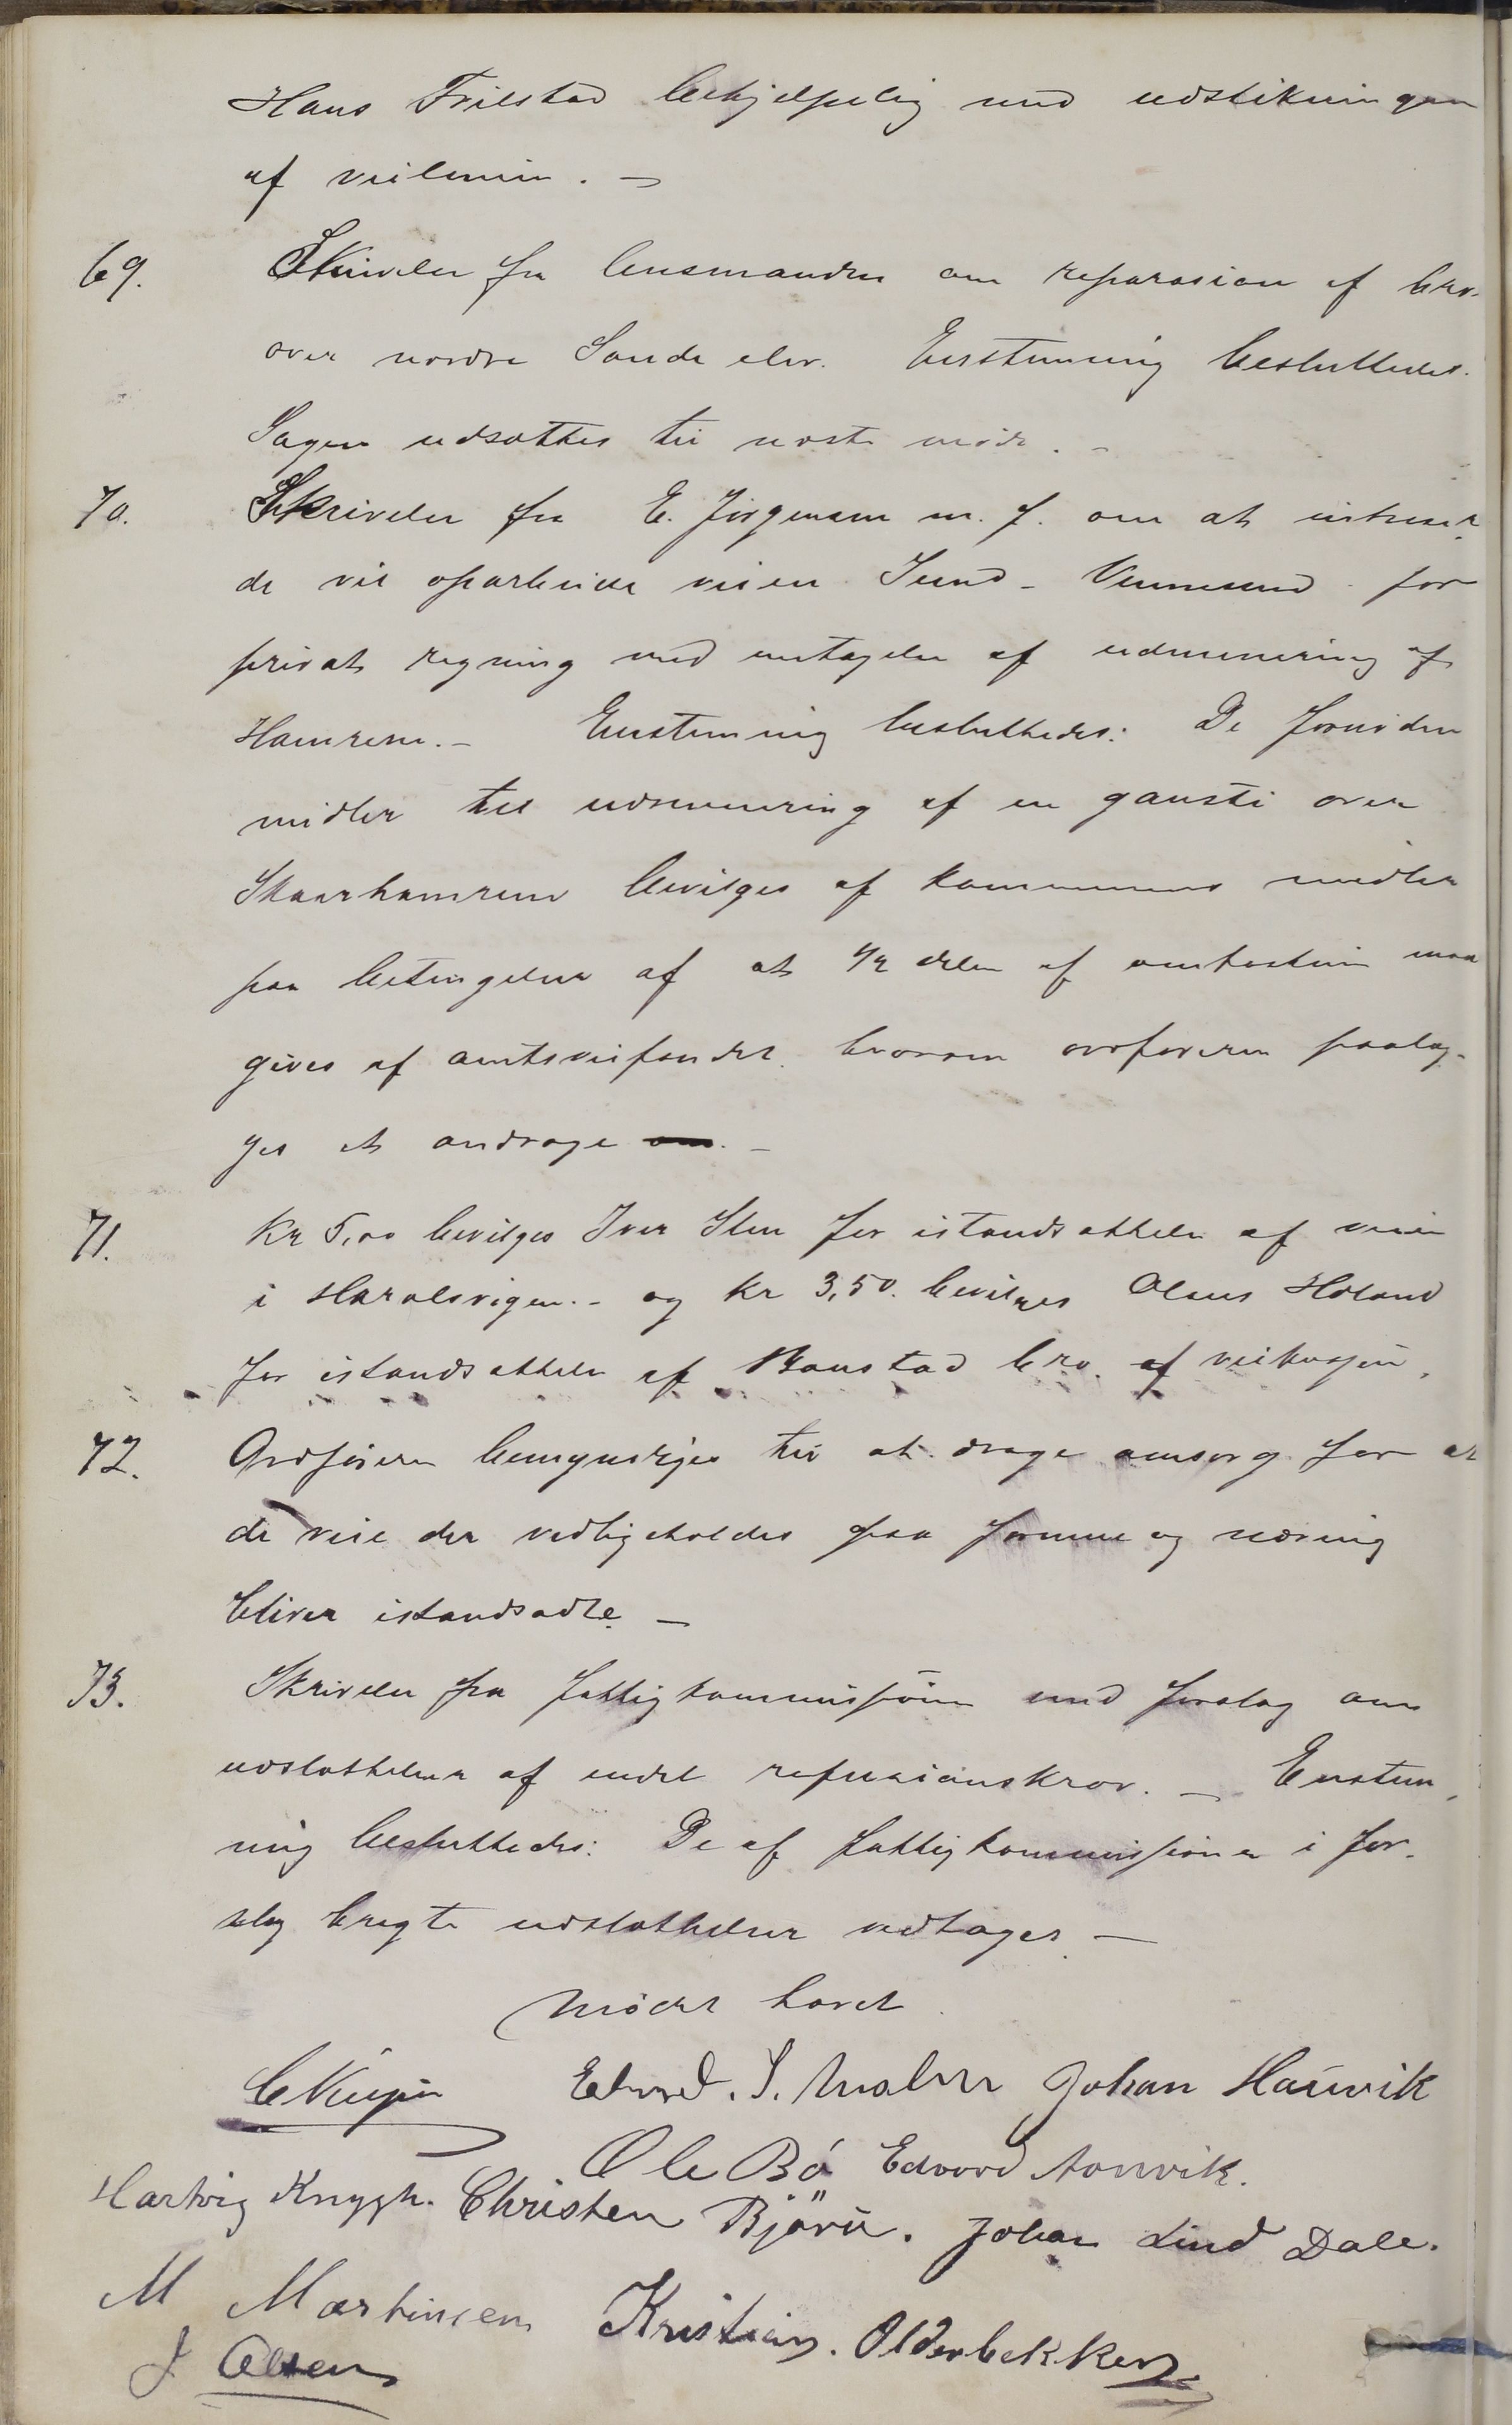 Hans Frilstad behjelpelig med udstikningen
af veilinien. –
69. Skrivelse fra lensmanden om reparasion af bro
over nordre Sande elv. Enstemmig besluttedes.
Sagen udsættes til næste møde. –
70. Skrivelse fra E. Jørgensen m. f. om at
de vil oparbeide veien Sund – Vennesund for
privat regning med undtagelse af udminering af
Hamren. – Enstemmig besluttedes: De fornødne
midler til udminering af en gansti over
Skaarhamren bevilges af kommunens midler
paa betingelse af at 1/2 delen af omkostn maa
gives af amtsveifondet hvorom ordføreren paalæg-
ges at andrage. –
71. Kr 5,00 bevilges Iver Sten for istandsættelse af veien
i Haralsvigen. – og kr 3,50. bevilges Olaus Høland
for istandsættelse af Baustad bro. af veikassen.
72. Ordføreren bemyndiges til at drage omsorg for at
de veie der vedligeholdes paa fromme og næring
bliver istandsadte –
73. Skrivelse fra fattigkommissjonen med forslag om
udslettelse af endel refusionskrav. – Enstem
mig besluttedes: De af fattigkommissionen i for-
slag bragte udslettelser vedtages –
Mødet hævet.
Edvard. S. Malm Johan Haüvik
Ole Bø Edvard Aanvik.
Hartvig Knygh. Christen Bjørü. Johan Lind Dale.
M Martinsen Kristian. Olderbekken
J Olsen